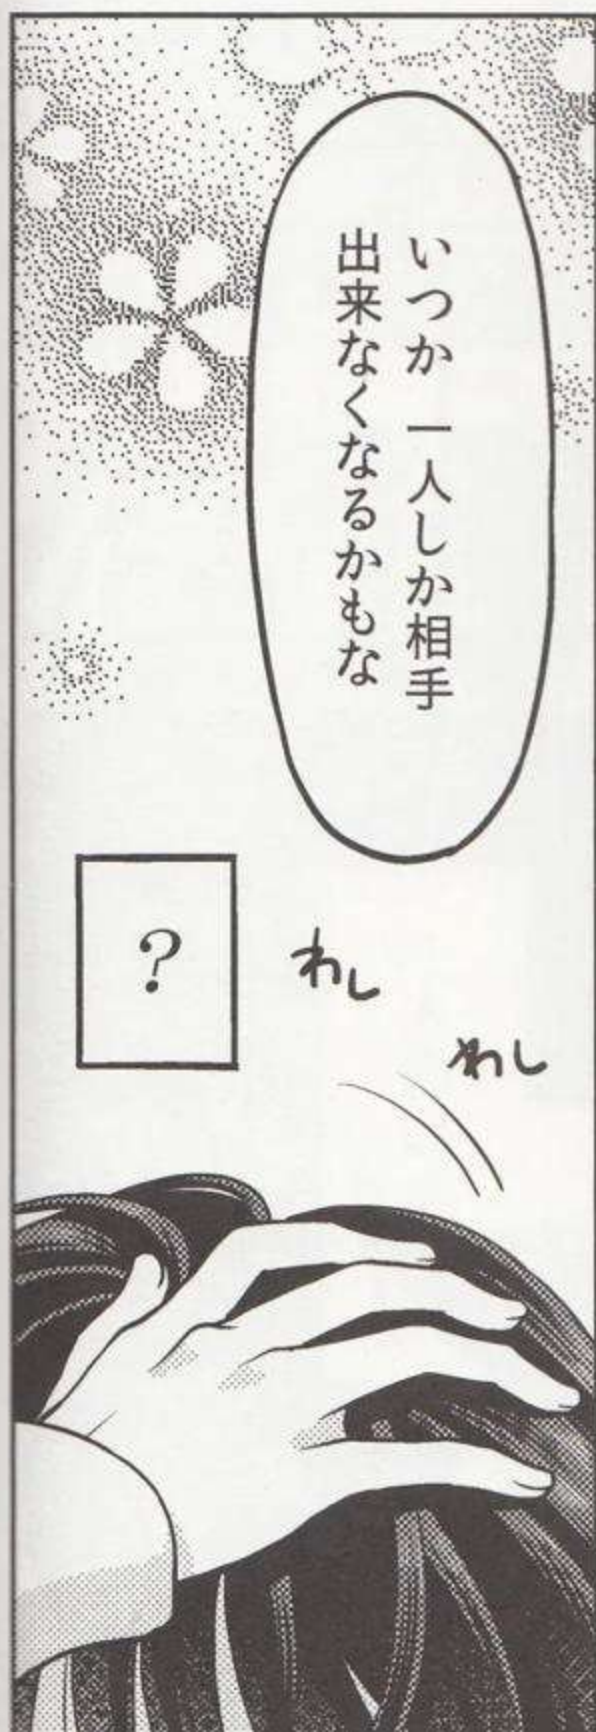 いつか 一人しか相手
出来なくなるかもな
わし
わし
?